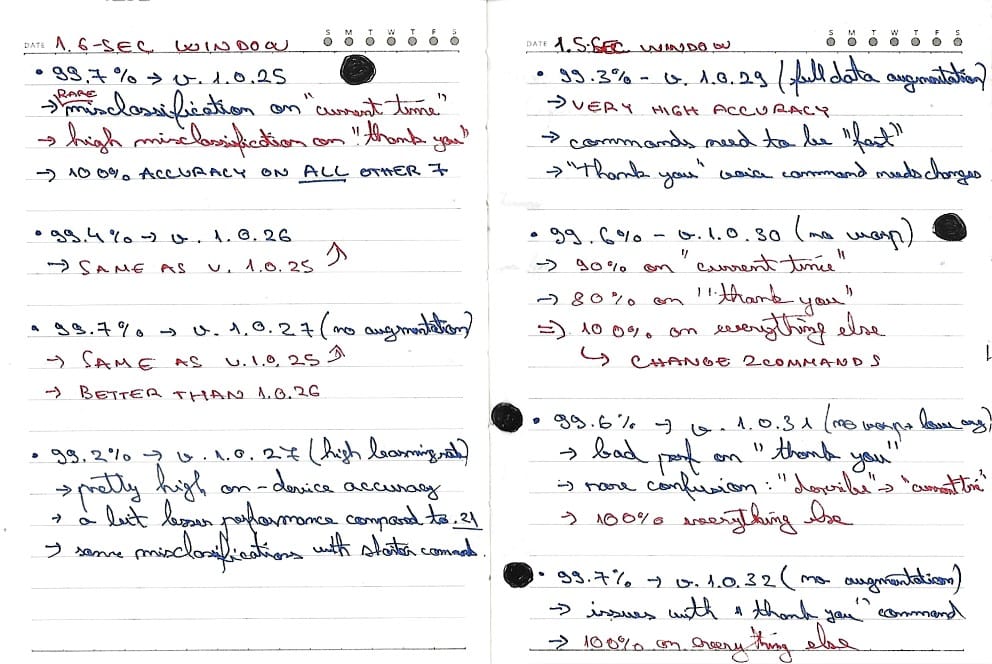 DATE 1.6-SEC WINDOW S M T W T F S
• 99.7% → v. 1.0.25
→ RARE misclassification on "current time"
→ high misclassification on "thank you"
→ 100% ACCURACY ON ALL OTHER 7
• 99.4% → v. 1.0.26
→ SAME AS V. 1.0.25
• 99.7% → v. 1.0.27 (no augmentation)
→ SAME AS V.1.0.25
→ BETTER THAN 1.0.26
• 99.2% → v. 1.0.27 (high learning rate)
→ pretty high on-device accuracy
→ a bit lesser performance compared to .21
→ some misclassifications with starter command.
DATE 1.5-SEC WINDOW S M T W T F S
• 99.3% - v. 1.0.29 (full data augmentation)
→ VERY HIGH ACCURACY
→ commands need to be "fast"
→ "Thank you" voice command needs changes
• 99.6% - v.1.0.30 (no warp)
→ 90% on "current time"
→ 80% on "thank you"
⇒ 100% on everything else
↳ CHANGE 2 COMMANDS
• 99.6% → v. 1.0.31 (no warp + low aug)
→ bad perf on "thank you"
→ rare confusion: "describe" → "current time"
→ 100% everything else
• 99.7% → v. 1.0.32 (no augmentation)
→ issues with "thank you" command
→ 100% on everything else